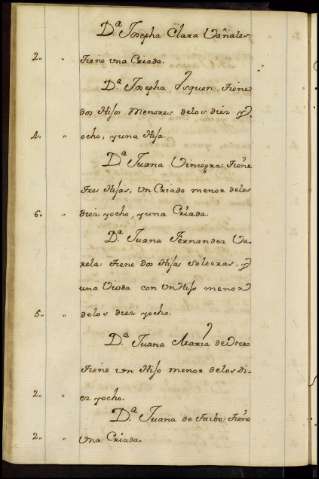 D.ª Josepha Clara Cañales
2. „ tiene una Criada.
D.ª Josepha Ysquen, tiene
dos Hijos Menores delos diez y
4. „ ocho, y una Hija
D.ª Juana tiene
tres Hijas, un Criado menor delos
6. „ diez y ocho, y una Criada.
D.ª Juana Fernandez Va
rela tiene dos Hijas Solteras, y
una Viuda con un Hijo menor
5. „ delos diez y ocho.
D.ª Juana Maria de
tiene un Hijo menor delos di
2. „ ez y ocho.
D.ª Juana de tiene
2. „ una Criada.